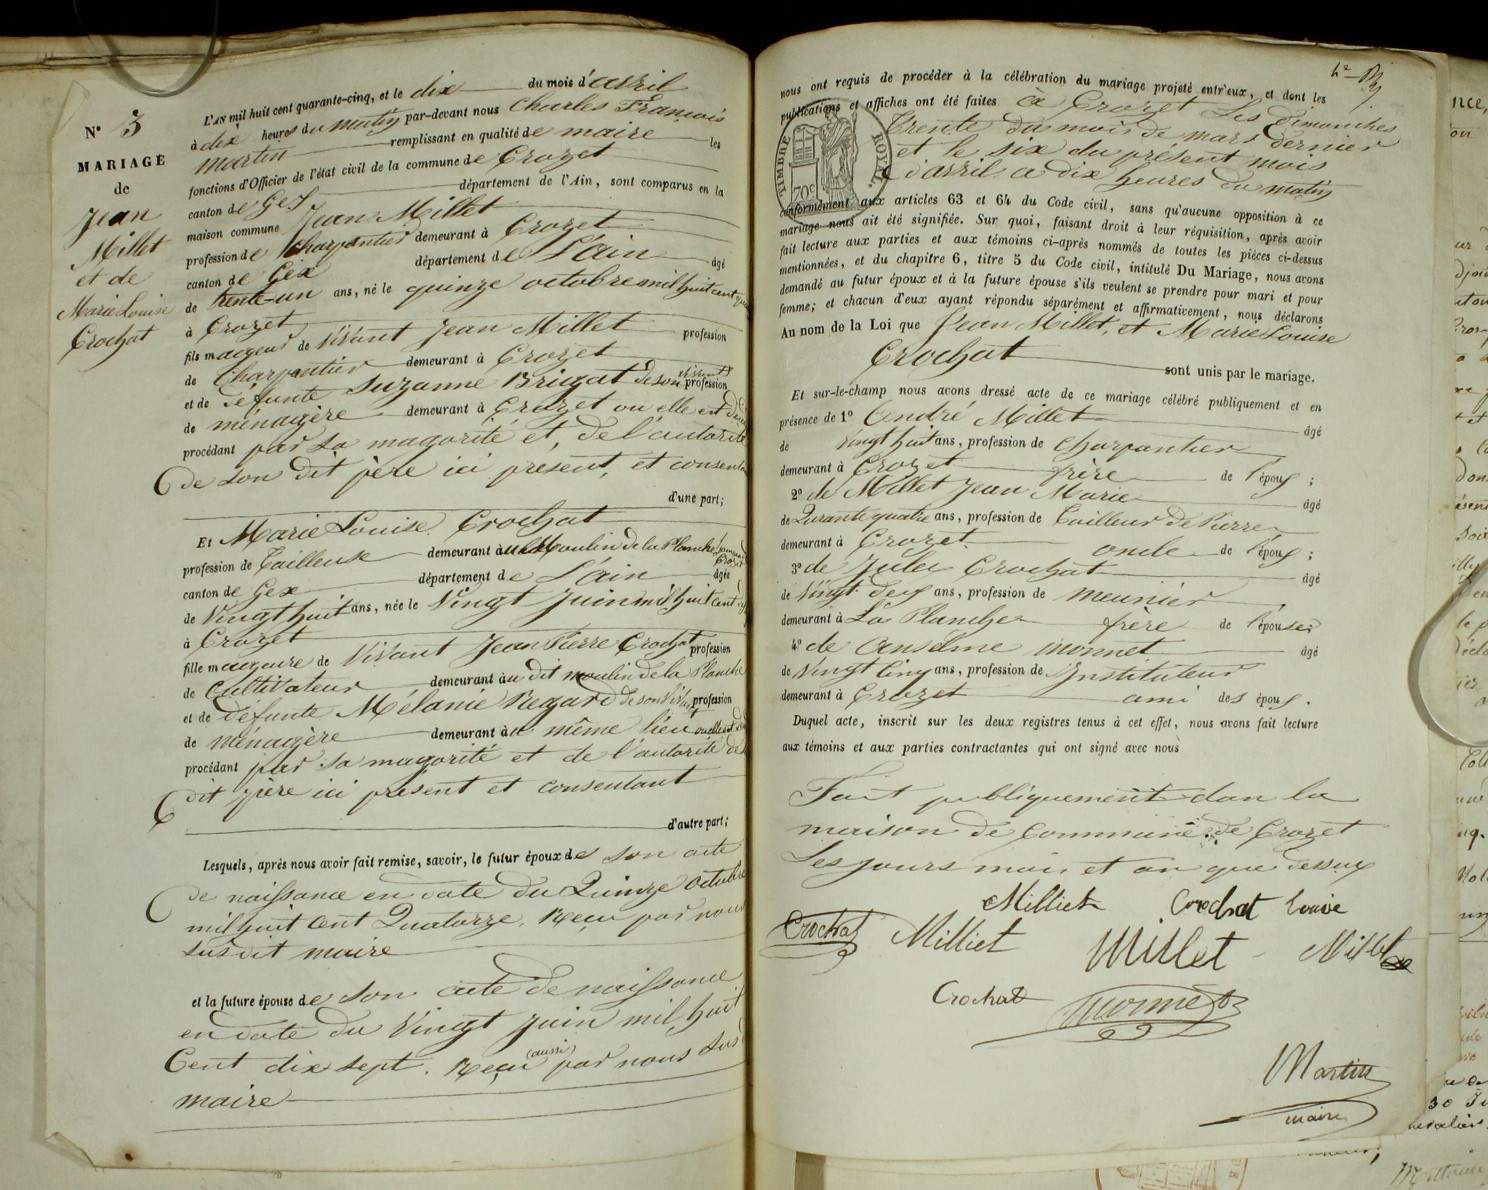 N° 3
MARIAGE
de
Jean
Millet
et de
Marie Louise
Crochat
L'AN mil huit cent quarante-cinq, et le dix du mois d'avril
à dix heures du matin par-devant nous Charles François
Martin remplissant en qualité de maire les
fonctions d'Officier de l'état civil de la commune de Crozet
canton de Gex département de l'Ain, sont comparus en la
maison commune Jean Millet
profession de charpentier demeurant à Crozet
canton de Gex département de L'ain âgé
de trente-un ans, né le quinze octobre mil huit cent
à Crozet
fils majeur de vivant Jean Millet profession
de Charpentier demeurant à Crozet
et de défunte Suzanne Brugat de son vivant profession
de ménagère demeurant à Crozet ou elle est
procédant par sa magorité et, de l'autorité
de son dit père ici présent, et consentant
d'une part;
Et Marie Louise Crochat
profession de Tailleuse demeurant au Moulin de la Planche
canton de Gex département de L'ain âgée
de Vingt huit ans, née le Vingt Juin mil huit cent
à Crozet
fille mageure de Vivant Jean Pierre Crochat profession
de Cultivateur demeurant au dit moulin de la Planche
et de défunte Mélanie Regard de son vivant profession
de ménagère demeurant au même lieu ou elle est
procédant par sa magorité et de l'autorité de
dit père ici présent et consentant
d'autre part;
Lesquels, après nous avoir fait remise, savoir, le futur époux de son acte
de naissance en date du Quinze octobre
mil huit cent Quatorze. Reçu par nous
susdit maire
et la future épouse de son acte de naissance
en date du Vingt Juin mil huit
Cent dix sept. Reçu (aussi) par nous sus
maire
nous ont requis de procéder à la célébration du mariage projeté entr'eux, et dont les
publications et affiches ont été faites à Crozet Les Dimanches
trente du mois de mars dernier
et le six du présent mois
d'avril à dix heures du matin
TIMBRE ROYAL
70c
conformément aux articles 63 et 64 du Code civil, sans qu'aucune opposition à ce
mariage nous ait été signifiée. Sur quoi, faisant droit à leur réquisition, après avoir
fait lecture aux parties et aux témoins ci-après nommés de toutes les pièces ci-dessus
mentionnées, et du chapitre 6, titre 5 du Code civil, intitulé Du Mariage, nous avons
demandé au futur époux et à la future épouse s'ils veulent se prendre pour mari et pour
femme; et chacun d'eux ayant répondu séparément et affirmativement, nous déclarons
Au nom de la Loi que Jean Millet, et Marie Louise
Crochat sont unis par le mariage.
Et sur-le-champ nous avons dressé acte de ce mariage célébré publiquement et en
présence de 1° André Millet âgé
de vingt huit ans, profession de charpentier
demeurant à Crozet frère de l'époux;
2° de Millet Jean Marie âgé
de Quarante quatre ans, profession de Tailleur de Pierre
demeurant à Crozet oncle de l'époux;
3° de Jules Crochat âgé
de Vingt deux ans, profession de meunier
demeurant à La Planche frère de l'épouse;
4° de Anselme monnet âgé
de Vingt Cinq ans, profession de Instituteur
demeurant à Crozet ami des époux.
Duquel acte, inscrit sur les deux registres tenus à cet effet, nous avons fait lecture
aux témoins et aux parties contractantes qui ont signé avec nous
Fait publiquement dan la
maison de Commune de Crozet
Les jours mois et an que dessus
Milliet Crochat Louise
Crochat Milliet Millet Millet
Crochat Monnet
Martin
maire